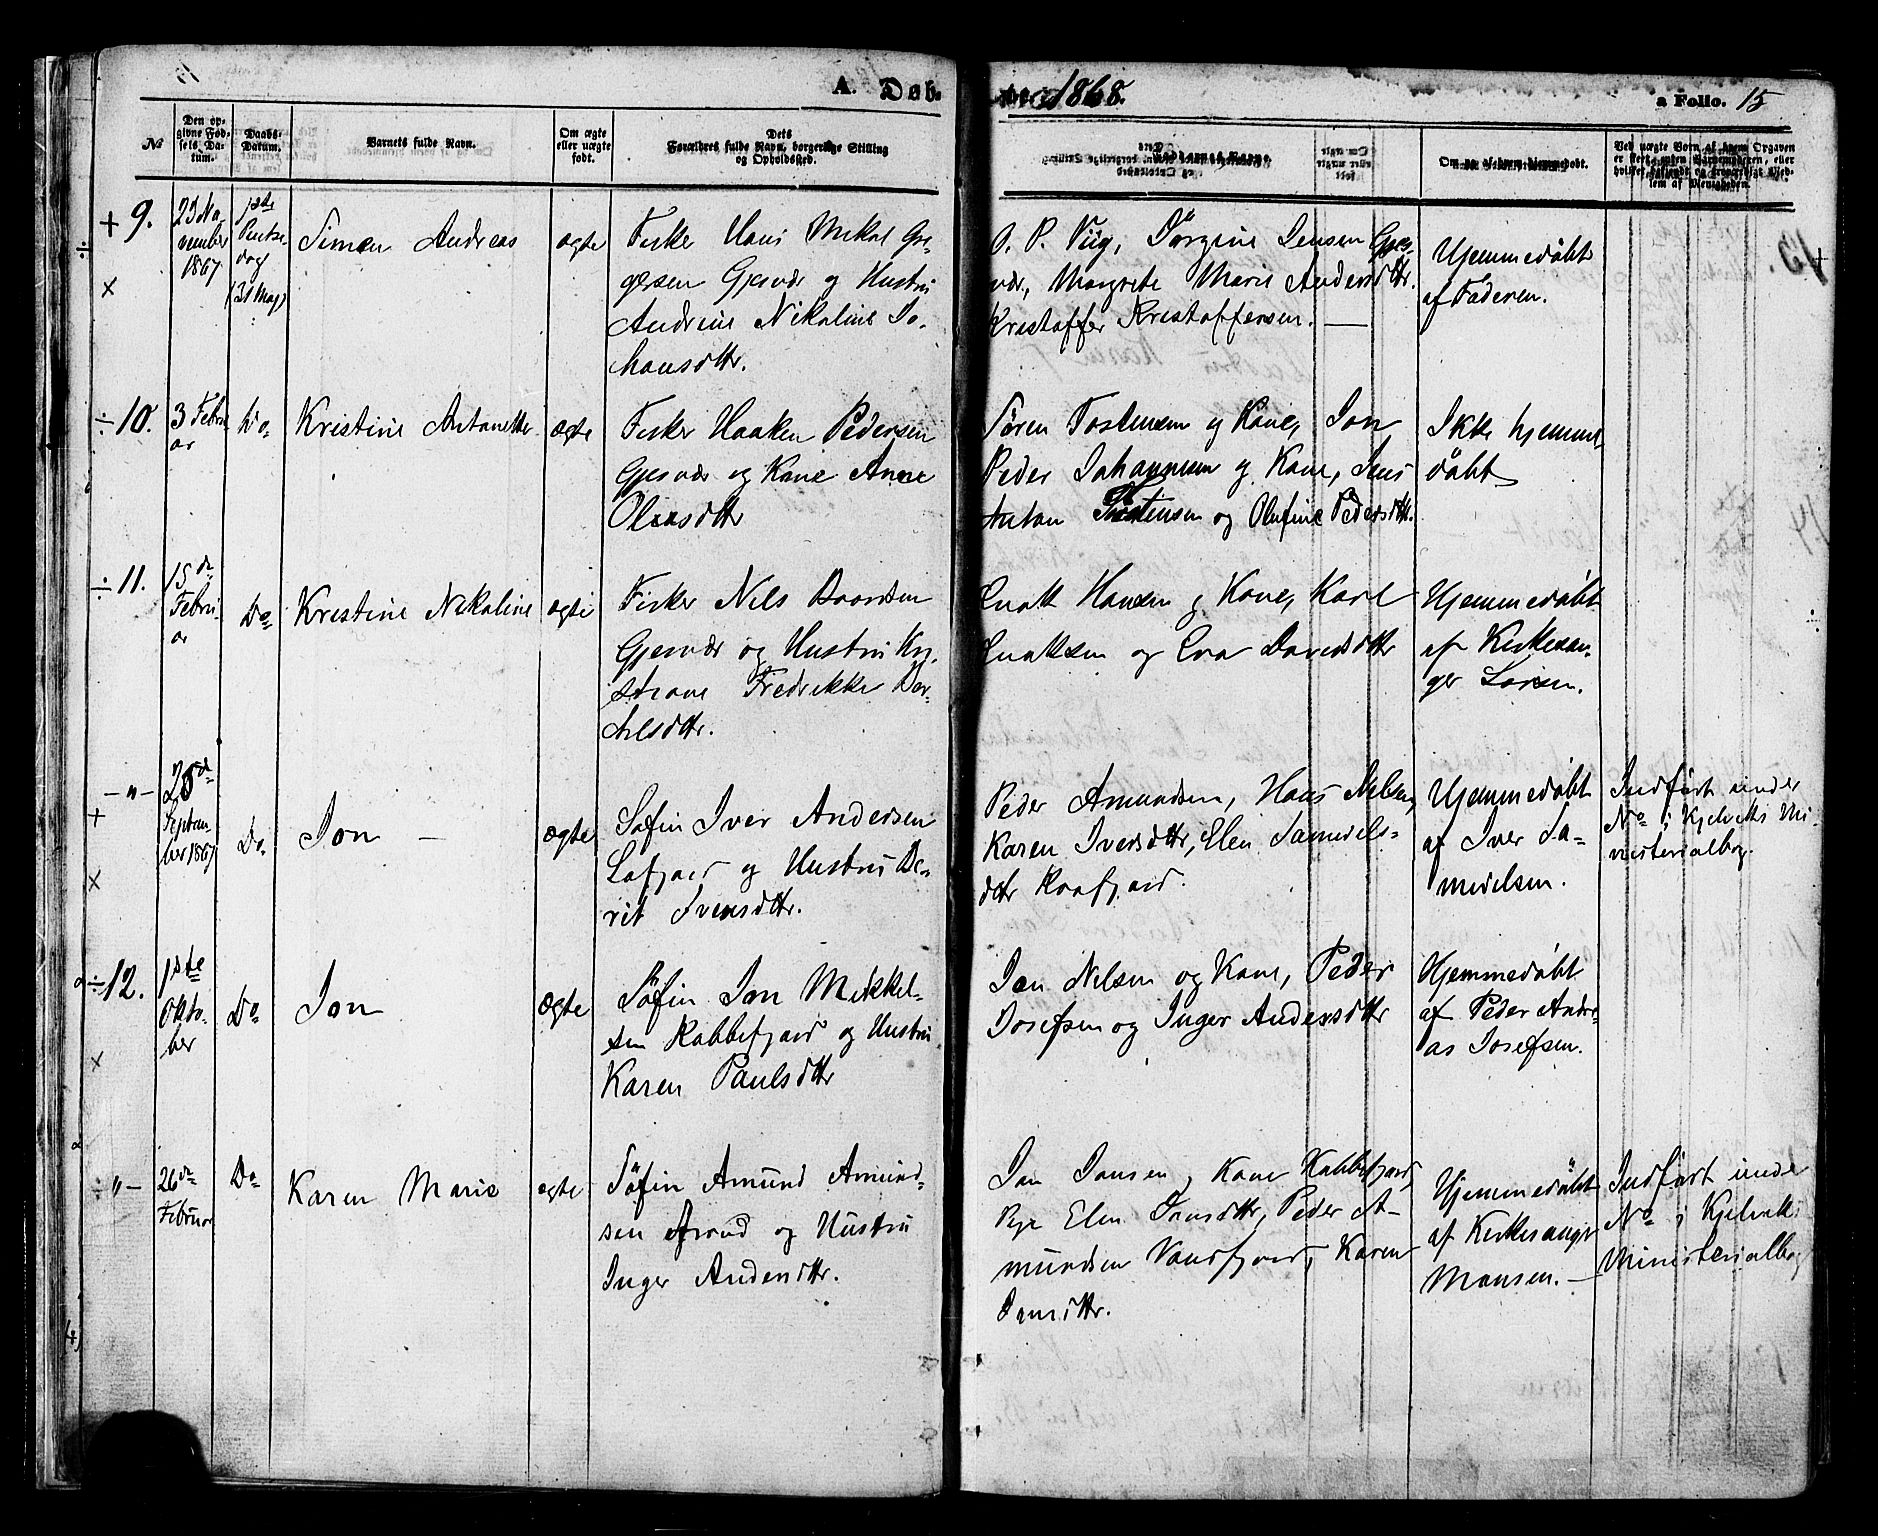 A. Døb-
1868.
a Folio. 15
№
Den op-
givne Fød-
sels Da-
tum.
Daabs-
Datum.
Barnets fulde Navn.
Om ægte
eller uægte
født.
Dets
Forældres fulde Navn, borgerlige Stilling
og Opholdssted.
Ved uægte Børn af hvem Opgaven
+ 9.
23 No-
vember
1867
1ste
Pintse-
dag
(31 Maj)
Simon Andreas
ægte
Fisker Hans Mikal Gre-
gersen Gjesvær og Hustru
Andrine Nikoline Jo-
hansdttr.
O. P. Viig, Jørgine Jensen Gjes-
vær, Margrete Marie Andersdttr.
Kristoffer Kristoffersen. —
Hjemmedøbt
af Faderen.
÷ 10.
3 Febru
ar
Do
Kristine Antonette
ægte
Fisker Haaken Pedersen
Gjesvær og Kone Anne
Olausdttr
Søren Tostensen og Kone, Jon
Peder Johannesen og Kone, Jens
Anton Tostensen og Olufine Pedersdttr.
Ikke hjemme
døbt
÷ 11.
15de
Febru-
ar
Do
Kristine Nikoline
ægte
Fisker Nils
Gjesvær og Hustru Kri-
stiane Fredrikke Bar-
Hansen og Kone, Karl
og Eva Davidsdttr
Hjemmedøbt
af Kirkesan-
ger Larsen.
—"—
25de
Septem-
ber 1867
Do
Jon —
ægte
Søfin Iver Andersen
Lafjord og Hustru Be-
rit Iversdttr.
Peder Amundsen, Hans Nilsen,
Karen Iversdttr, Elen Samuels-
dttr
Hjemmedøbt
af Iver Sa-
muelsen.
Indført under
No i Kjelviks Mi-
nisterialbog.
÷ 12.
1ste
Okto-
ber
Do
Jon
ægte
Søfin Jon Mikkel-
sen Kobbefjord og Hustru
Karen Paulsdttr
Jon Nilsen og Kone, Peder
Josefsen og Inger Andersdttr
Hjemmedøbt
af Peder Andre-
as Josefsen.
÷ "—
26de
Februar
Do
Karen Marie
ægte
Søfin Amund Amund-
sen og Hustru
Inger Andersdttr.
Jon Jonsen, Kone Kobbefjord,
Pige Elen Jonsdttr, Peder A-
mundsen Vandfjord, Karen
Jonsdttr.
Hjemmedøbt
af Kirkesanger
Monsen. —
Indført under
No i Kjelviks
Ministerialbog